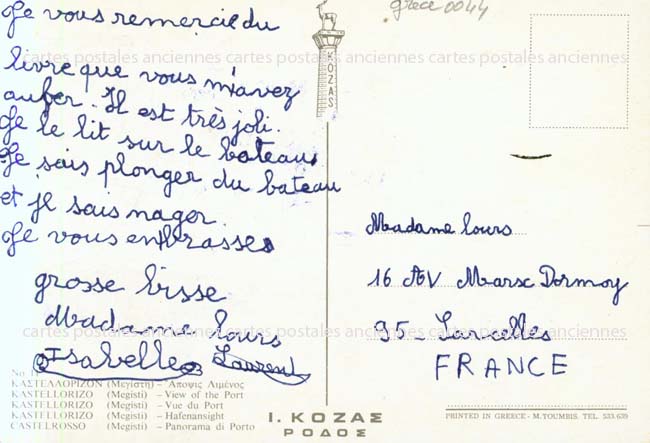 Je vous remercie du
livre que vous m'avez
aufer. Il est très joli.
Je le lit sur le bateau
Je sais plonger du bateau
et je sais nager
Je vous enbrasse
grosse bisse
Madame lours
Isabelle Laurent
grece 0044
KOZAS
Madame lours
16 AV Marx Dormoy
95 - Sarcelles
FRANCE
cartes postales anciennes cartes postales anciennes cartes postales anciennes
cartes postales anciennes cartes postales anciennes cartes postales anciennes
No
ΚΑΣΤΕΛΛΟΡΙΖΟΝ (Μεγίστη) – Αποψις Λιμένος
KASTELLORIZO (Megisti) – View of the Port
KASTELLORIZO (Megisti) – Vue du Port
KASTELLORIZO (Megisti) – Hafenansight
CASTELROSSO (Megisti) – Panorama di Porto
Ι. ΚΟΖΑΣ
ΡΟΔΟΣ
PRINTED IN GREECE - M. TOUMBIS. TEL. 533.639